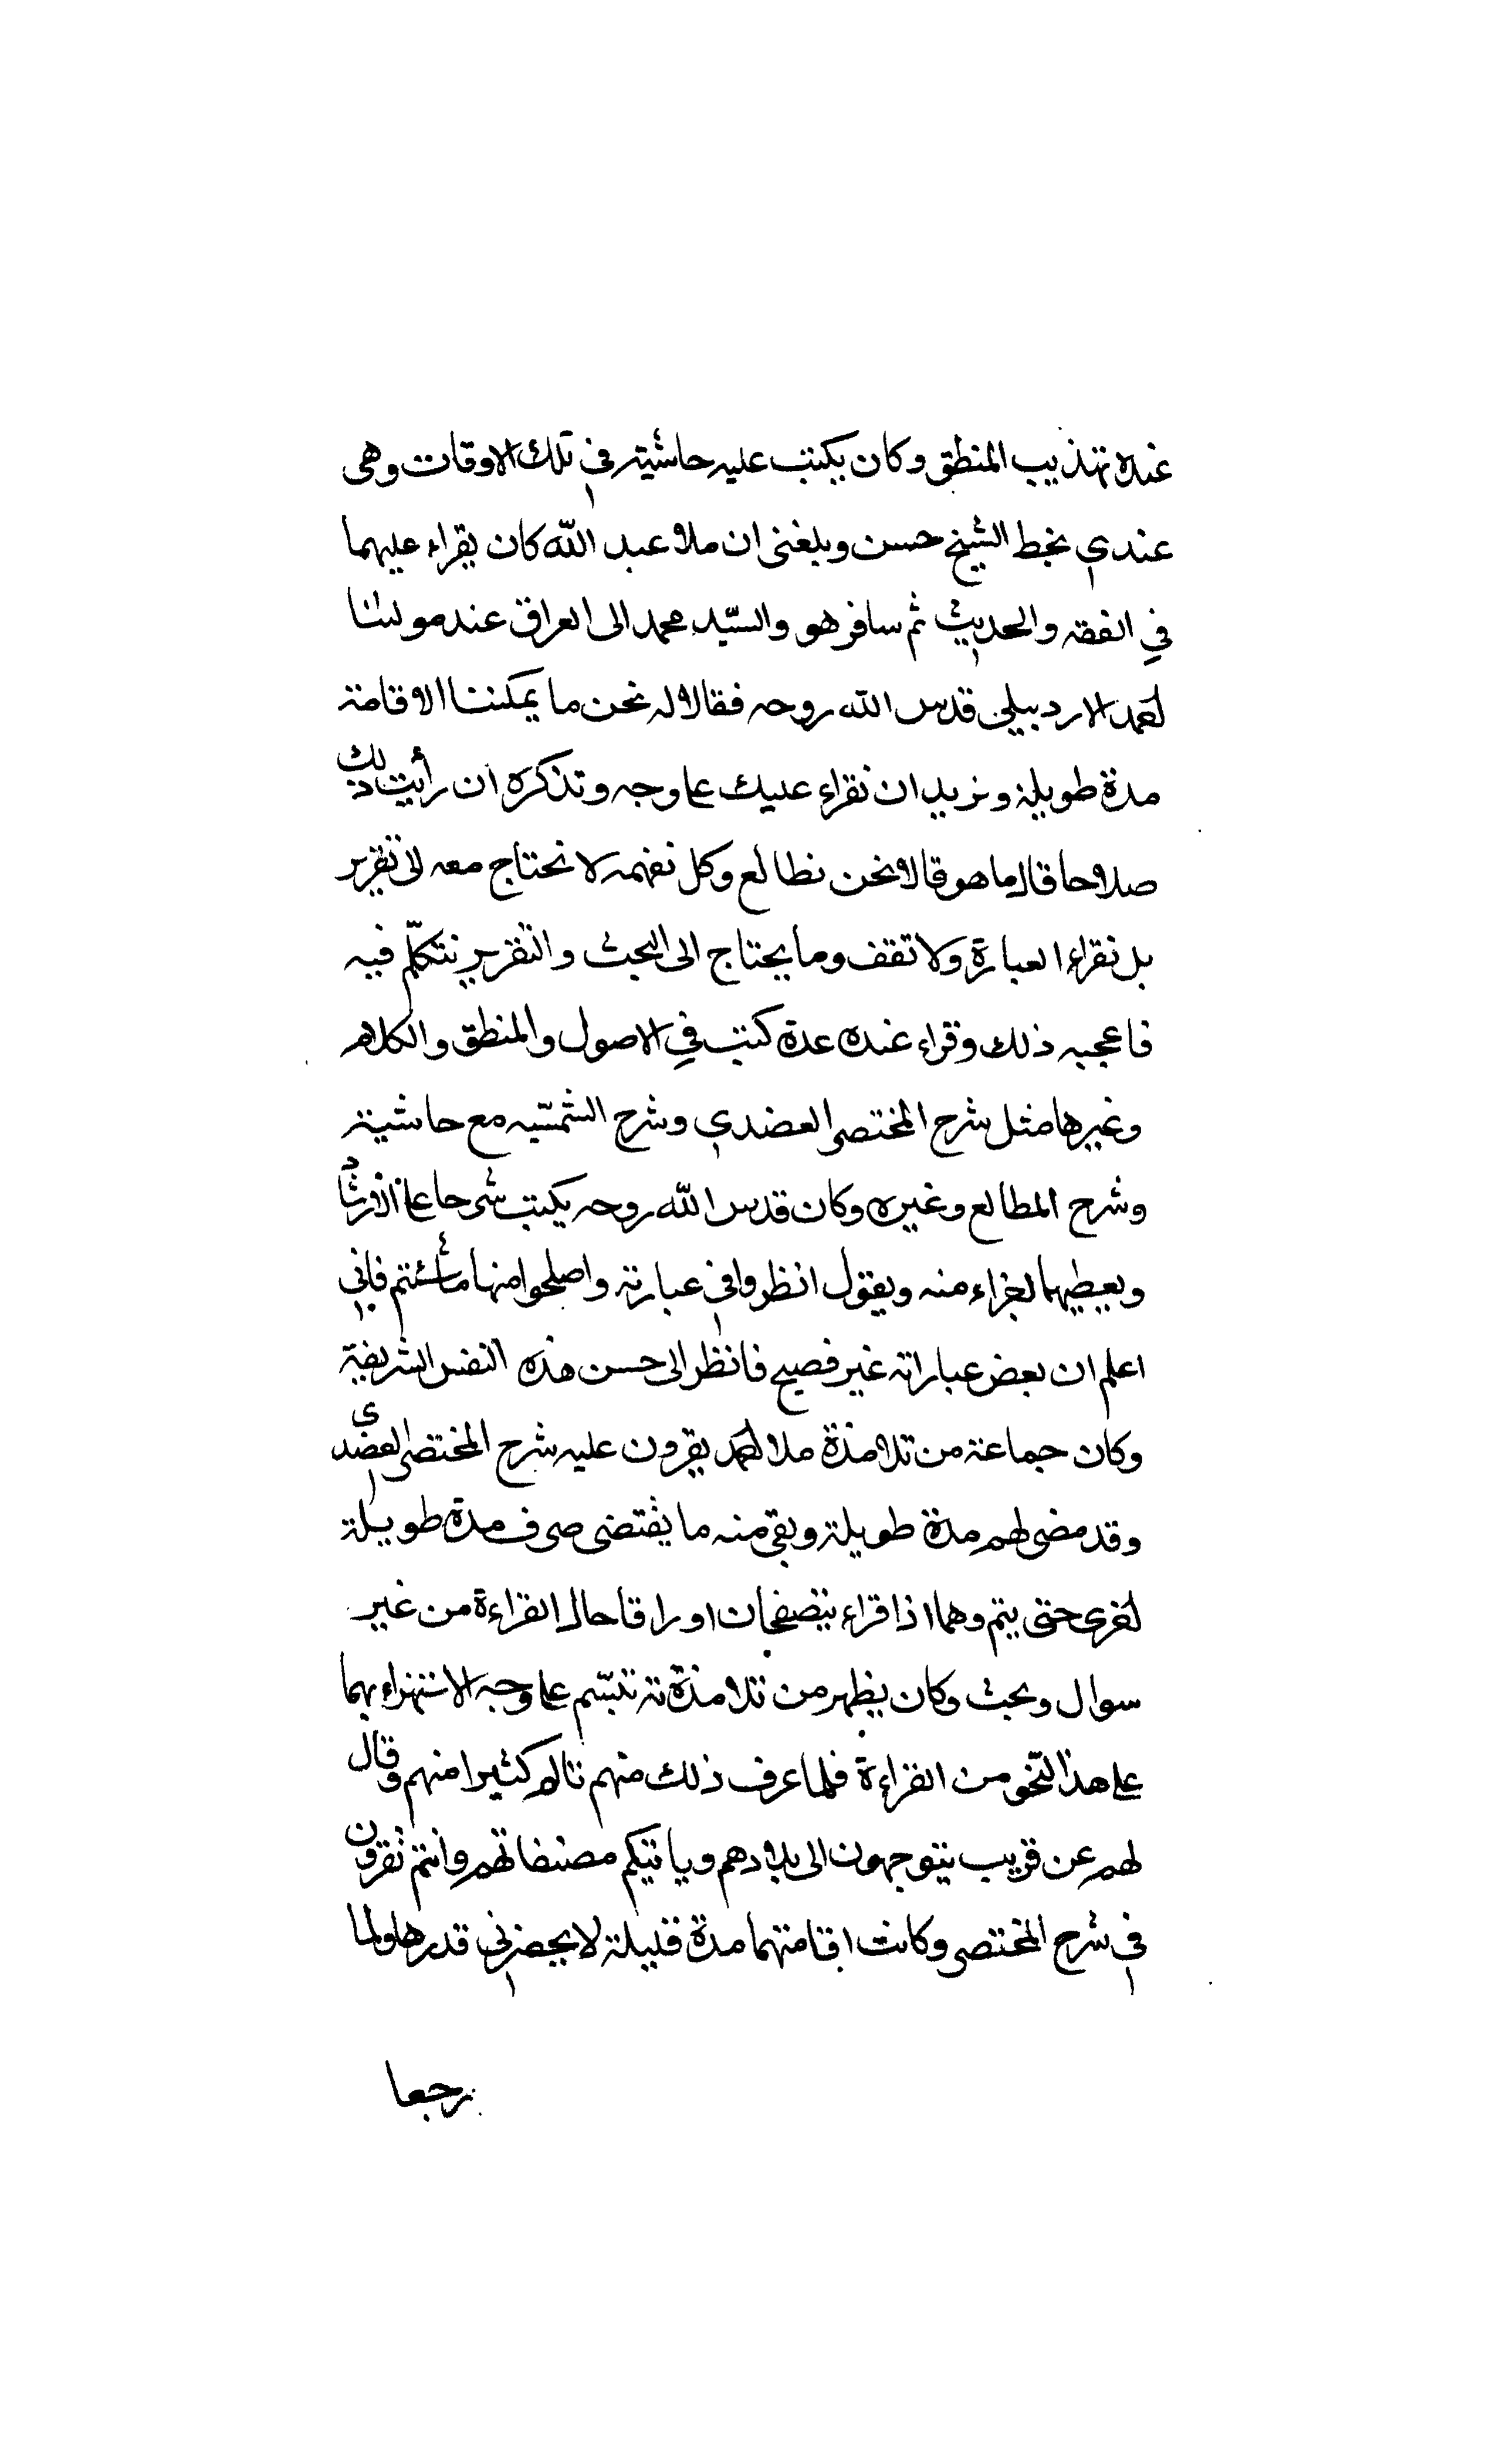 عنده تهذيب المنطق وكان يكتب عليه حاشيته في تلك الاوقات وهي
عندي بخط الشيخ حسن وبلغني ان ملا عبد الله كان يقراء عليهما
في الفقه والحديث ثم سافر هو والسيّد محمد الى العراق عند مولسنا
احمد الاردبيلي قدس الله روحه فقالا له نحن ما يمكننا الاقامة
مدة طويلة ونريد ان نقراء عليك على وجه وتذكره ان رأيت ذلك
صلاحا قال ما هو قالا نحن نطالع وكل نفهمه لا نحتاج معه الى تقرير
بل نقراء العبارة ولا نقف وما يحتاج الى البحث والتقرير نتكلّم فيه
فاعجبه ذلك وقراء عنده عدة كتب في الاصول والمنطق والكلام
وغيرها مثل شرح المختصر العضدي وشرح الشمسّيه مع حاشية
وشرح المطالع وغيره وكان قدس الله روحه يكتب شرحا على الارشاد
ويعطيهما اجزاء منه ويقول انظروا في عبارته واصلحوا منها ما شئتم فاني
اعلم ان بعض عباراته غير فصيح فانظر الى حسن هذه النفس الشريفة
وكان جماعة من تلامذة ملا احمد يقرون عليه شرح المختصر العضدى
وقد مضى لهم مدة طويلة وبقي منه ما يقتضى صرف مدة طويلة
اخرى حتى يتم وهما اذا قراء يتصفحان اوراقا حال القراءة من غير
سوال وبحث وكان يظهر من تلامذة ته تبسّم على وجه الاستهزاء بهما
على هذا النّحو من القراءة فلما عرف ذلك منهم تالم كثيرا منهم وقال
لهم عن قريب يتوجهون الى بلادهم وياتيكم مصنفاتهم وانتم تقرون
في شرح المختصر وكانت اقامتهما مدة قليلة لا يحضرني قدرها ولما
رجعا